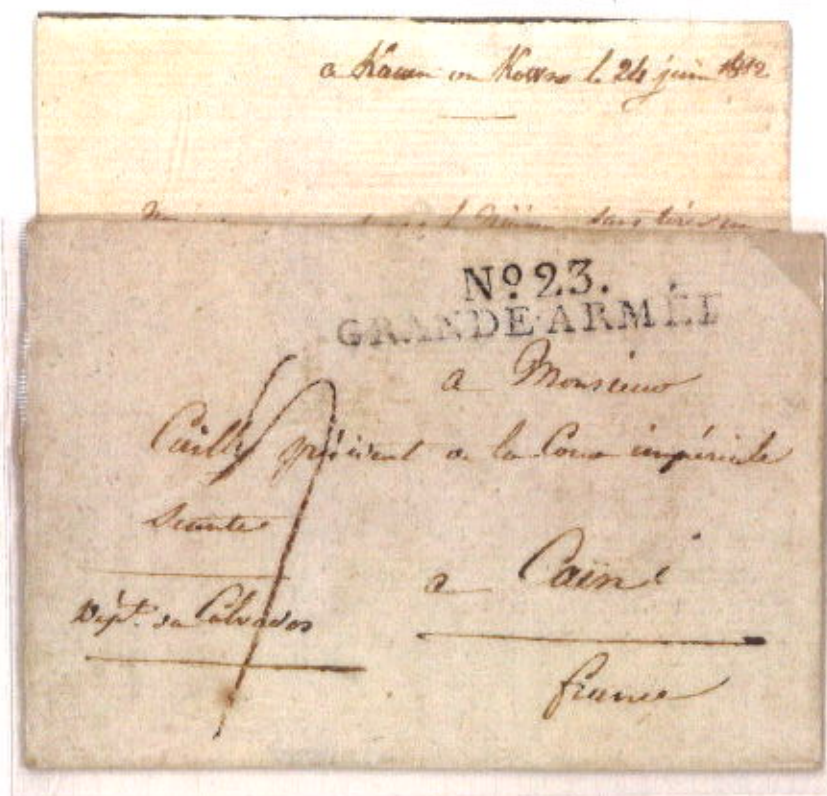 a Kawen ou Kowno le 24 juin 1812
le Niémen sans tirer un
Nº 23.
GRANDE·ARMÉE
a Monsieur
Cailly président a la Cour impériale
Seante
a Caën
Dépt. du Calvados
france